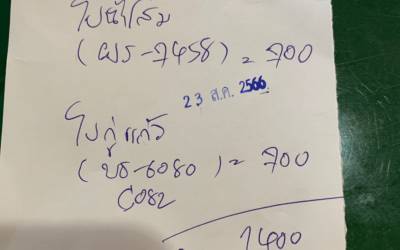 ใบน้ำโสม
(ผร-7458) = 700
23 ส.ค. 2566
ใบกู่แก้ว
(บร-6080) = 700
C082
1400